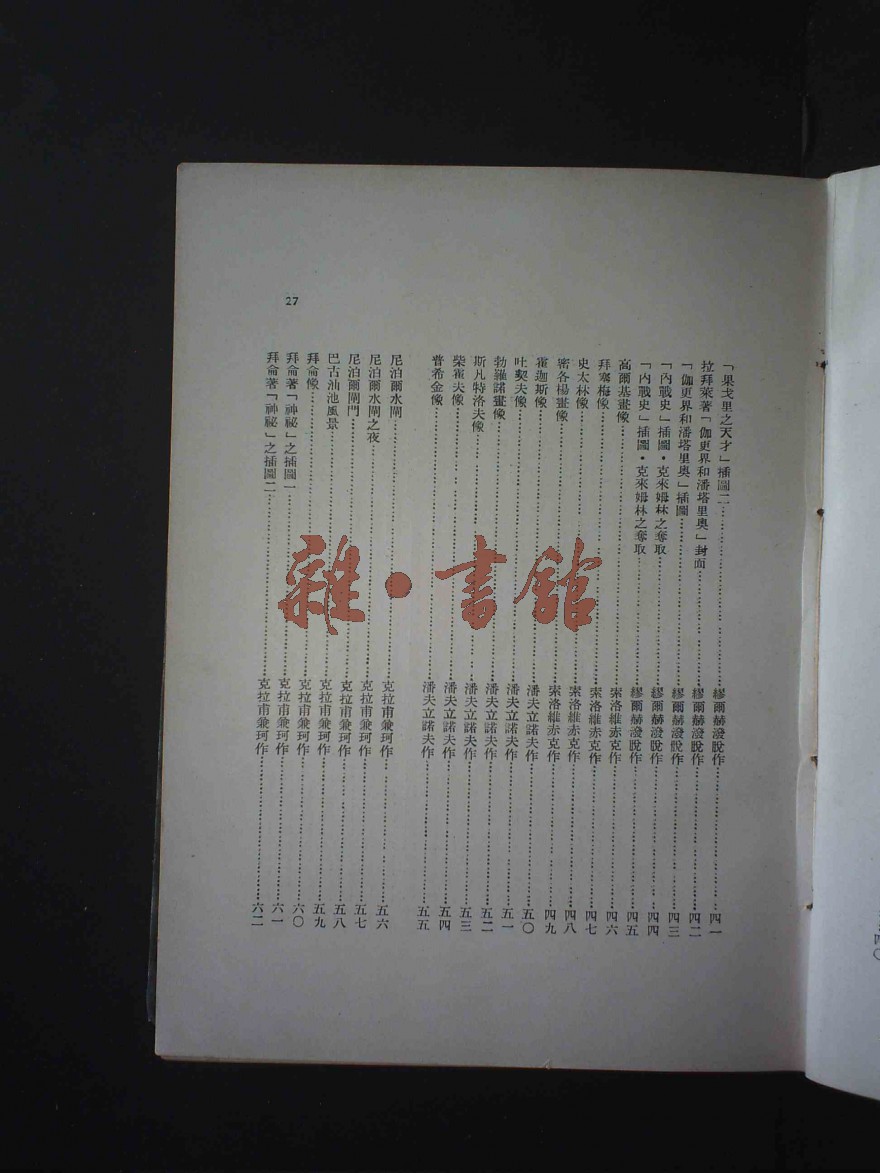 「果戈里之天才」插圖二……繆爾赫潑脫作……四一
拉拜萊著「伽更界和潘塔里奧」封面……繆爾赫潑脫作……四二
「伽更界和潘塔里奧」插圖……繆爾赫潑脫作……四三
「內戰史」插圖·克來姆林之奪取……繆爾赫潑脫作……四四
「內戰史」插圖·克來姆林之奪取……繆爾赫潑脫作……四五
高爾基畫像……索洛維赤克作……四六
拜塞梅像……索洛維赤克作……四七
史太林像……索洛維赤克作……四八
密各楊畫像……索洛維赤克作……四九
霍迦斯像……潘夫立諾夫作……五〇
吐契夫像……潘夫立諾夫作……五一
勃羅諾畫像……潘夫立諾夫作……五二
斯凡特洛夫像……潘夫立諾夫作……五三
柴霍夫像……潘夫立諾夫作……五四
普希金像……潘夫立諾夫作……五五
尼泊爾水閘……克拉甫兼珂作……五六
尼泊爾水閘之夜……克拉甫兼珂作……五七
尼泊爾閘門……克拉甫兼珂作……五八
巴古汕池風景……克拉甫兼珂作……五九
拜侖像……克拉甫兼珂作……六〇
拜侖著「神祕」之插圖一……克拉甫兼珂作……六一
拜侖著「神祕」之插圖二……克拉甫兼珂作……六二
27
雜·書館
四〇